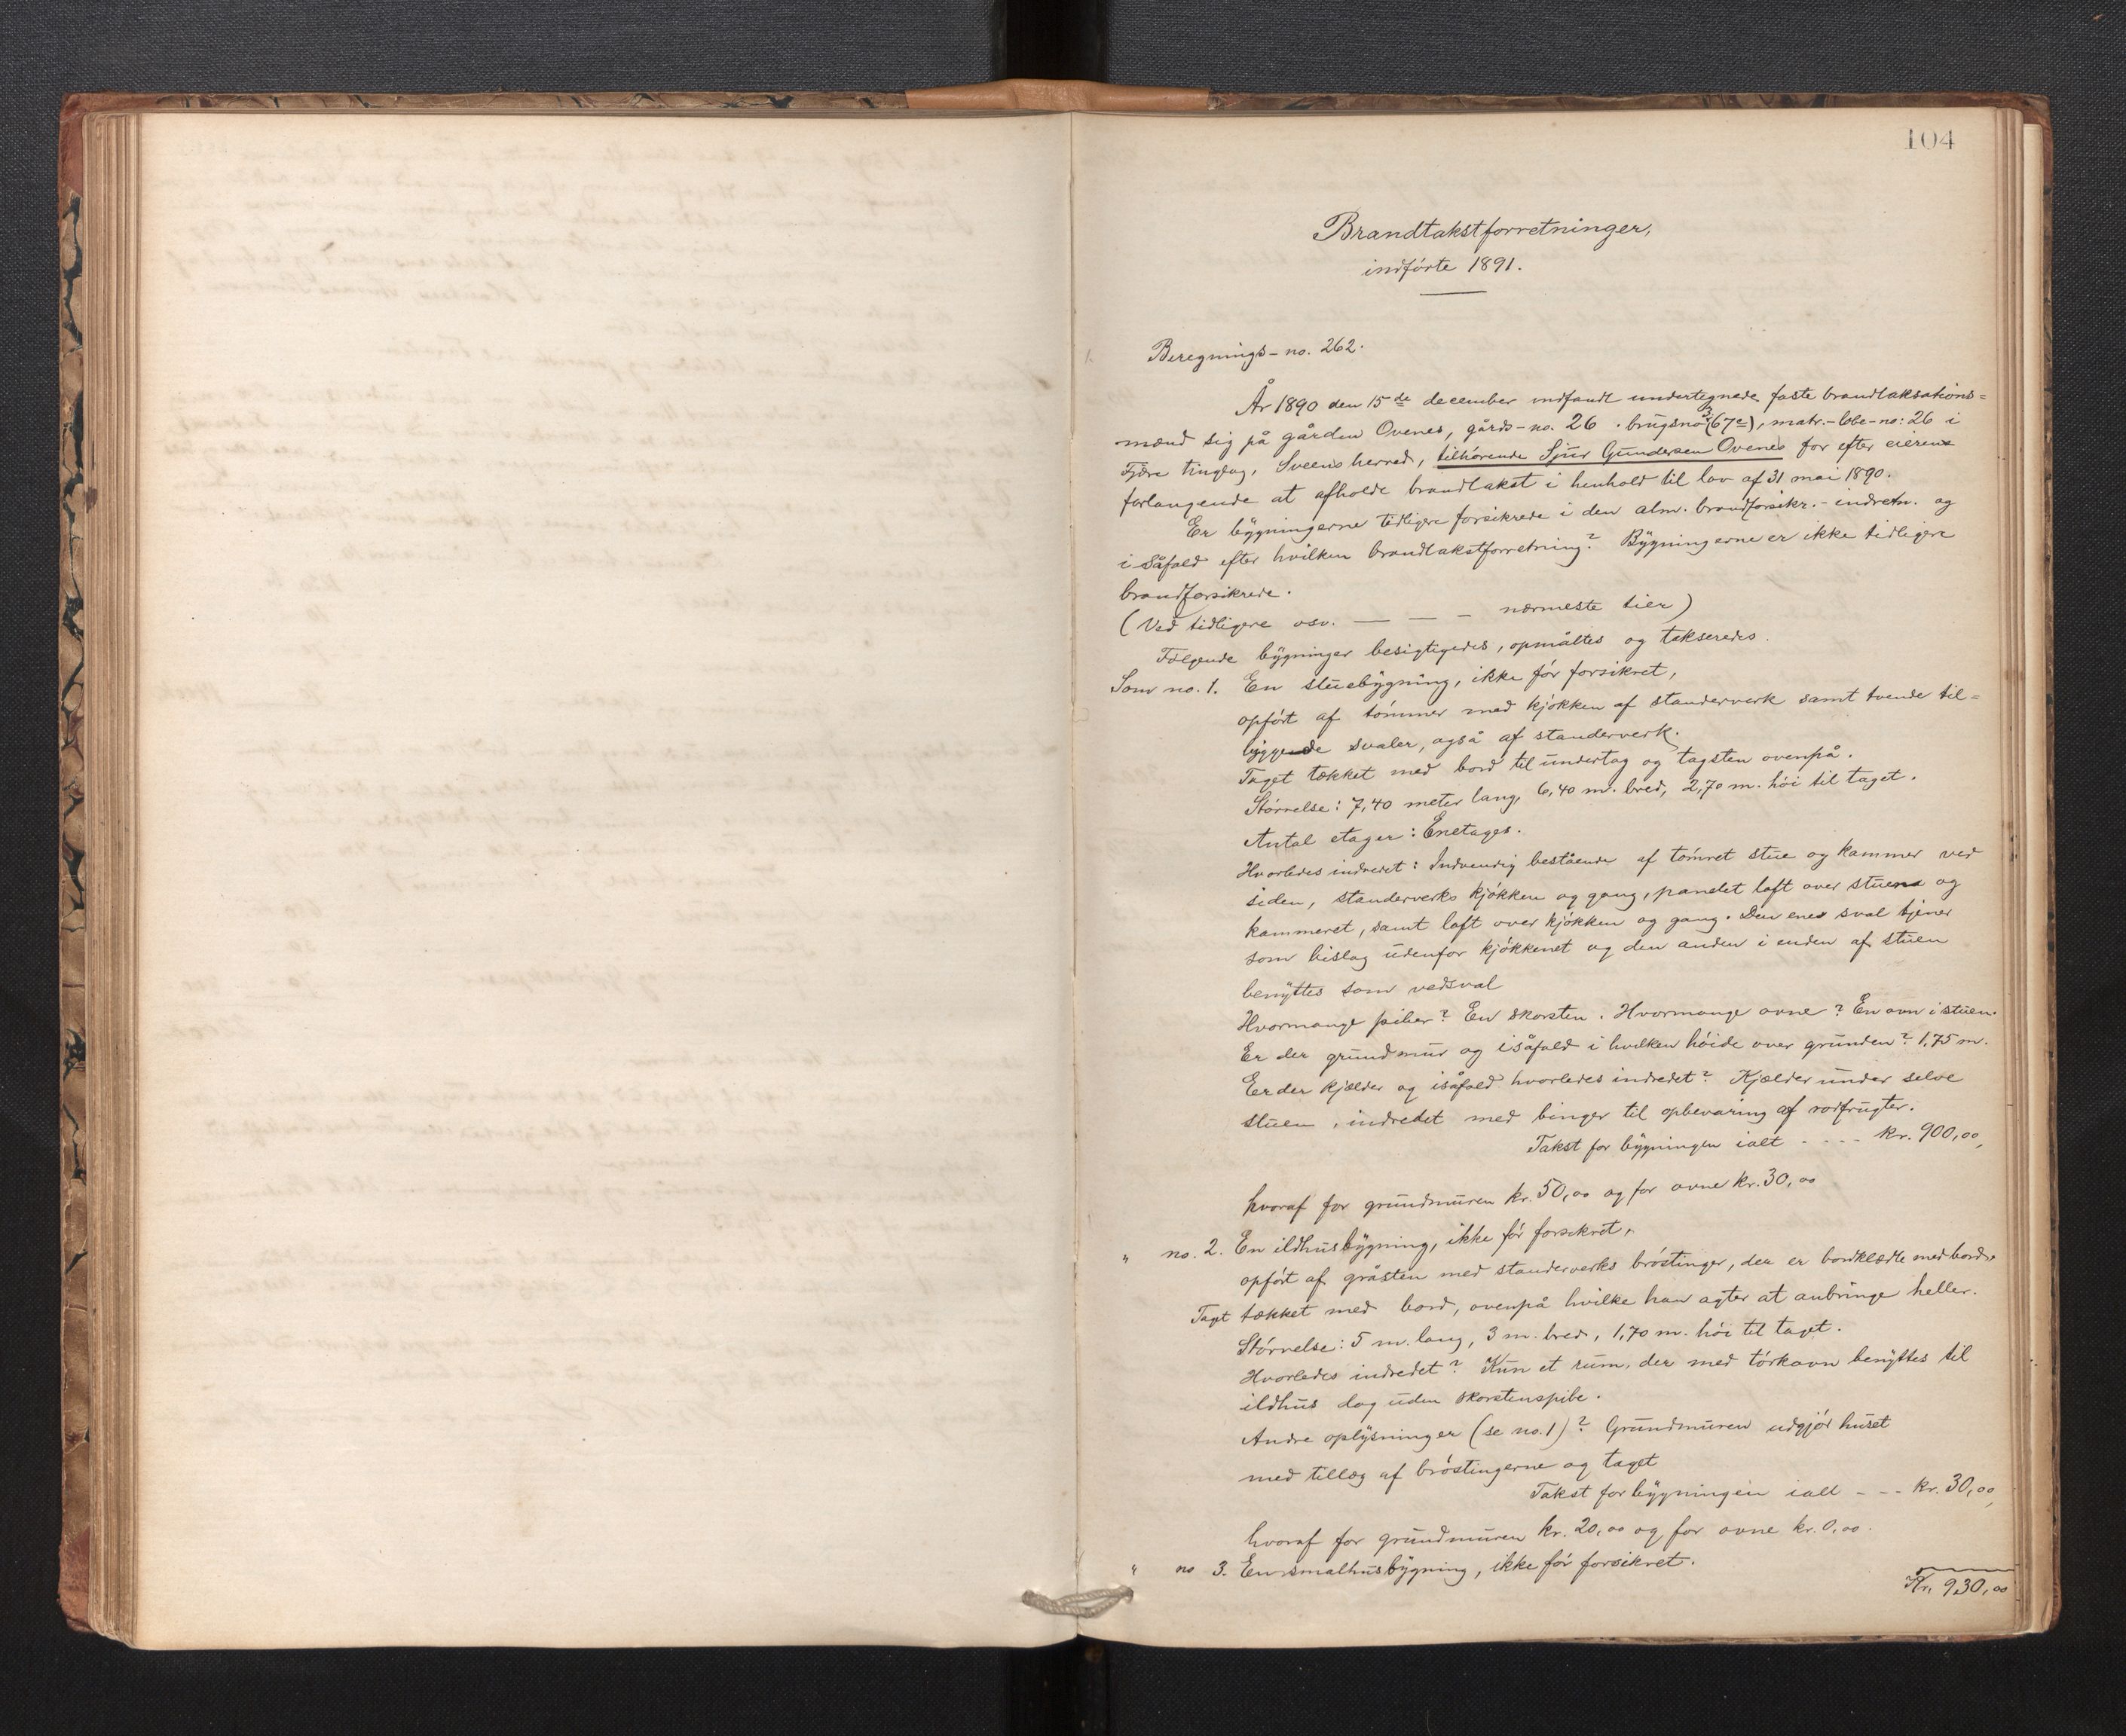 104
Brandtakstforretninger,
indførte 1891.
Beregnings-no. 262.
År 1890 den 15de december indfandt undertegnede faste brandtaksations=
mænd sig på gården Ovenes, gårds-no. 26. brugsno 3 (67e), matr.-løbe-no: 26 i
Fjære tinglag, Sveens herred, tilhørende Sjur Gundersen Ovenes for efter eierens
forlangende at afholde brandtakst i henhold til lov af 31 mai 1890.
Er bygningerne tidligere forsikrede i den alm. brandforsikr.-indretn. og
i såfald efter hvilken brandtakstforretning? Bygningerne er ikke tidligere
brandforsikrede.
(Ved tidligere osv. — — — nærmeste tier)
Følgende bygninger besigtigedes, opmåltes og takseredes.
Som no. 1. En stuebygning, ikke før forsikret,
opført af tømmer med kjøkken af standerverk samt tvende til=
byggende svaler, også af standerverk.
Taget tækket med bord til undertag og tagsten ovenpå.
Størrelse: 7,40 meter lang, 6,40 m. bred, 2,70 m. høi til taget.
Antal etager: Enetages.
Hvorledes indredet: Indvendig bestående af tømret stue og kammer ved
siden, standerverks kjøkken og gang, panelet loft over stuen og
kammeret, samt loft over kjøkken og gang. Den ene sval tjener
som bislag udenfor kjøkkenet og den anden i enden af stuen
benyttes som vedsval
Hvormange piber? En skorsten. Hvormange ovne? En ovn i stuen.
Er der grundmur og isåfald i hvilken høide over grunden? 1,75 m.
Er der kjælder og isåfald hvorledes indredet? Kjælder under selve
stuen, indredet med binger til opbevaring af rodfrugter.
Takst for bygningen ialt - - - - kr. 900,00,
hvoraf for grundmuren kr. 50,00 og for ovne kr. 30,00
" no. 2. En ildhusbygning, ikke før forsikret,
opført af gråsten med standerverks brøstinger, der er bordklædte med bord.
Taget tækket med bord, ovenpå hvilke han agter at anbringe heller.
Størrelse: 5 m. lang, 3 m. bred, 1,70 m. høi til taget.
Hvorledes indredet? Kun et rum, der med tørkovn benyttes til
ildhus dog uden skorstenspibe.
Andre oplysninger (se no. 1)? Grundmuren udgjør huset
med tillæg af brøstingerne og taget
Takst for bygningen ialt - - - kr. 30,00,
hvoraf for grundmuren kr. 20,00 og for ovne kr. 0,00.
" no 3. En smalhusbygning, ikke før forsikret.
Kr. 930,00